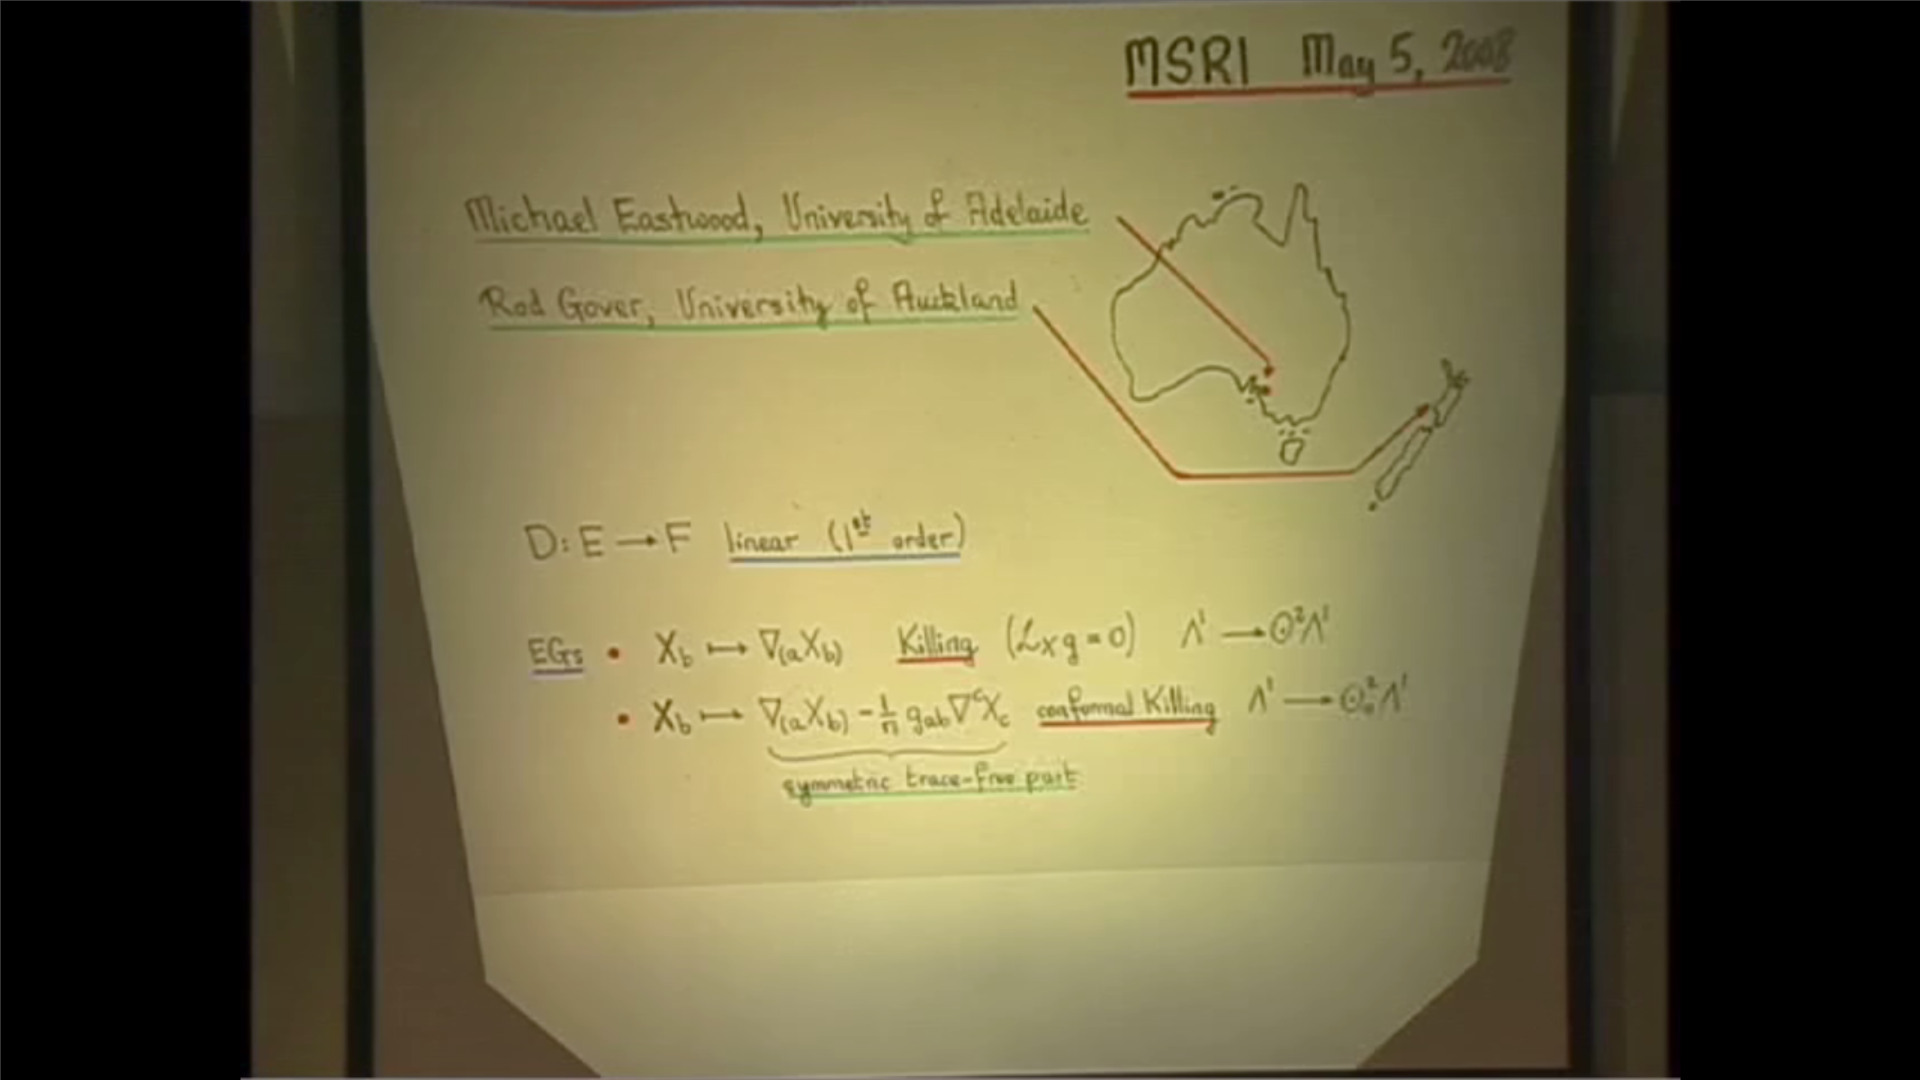 MSRI May 5, 2008
Michael Eastwood, University of Adelaide
Rod Gover, University of Auckland
D: E → F linear (1st order)
EGs • X_b ↦ ∇_(a X_b) Killing (ℒ_X g = 0) Λ¹ → ⊙²Λ¹
• X_b ↦ ∇_(a X_b) - 1/n g_ab ∇^c X_c conformal Killing Λ¹ → ⊙²_∘Λ¹
symmetric trace-free part